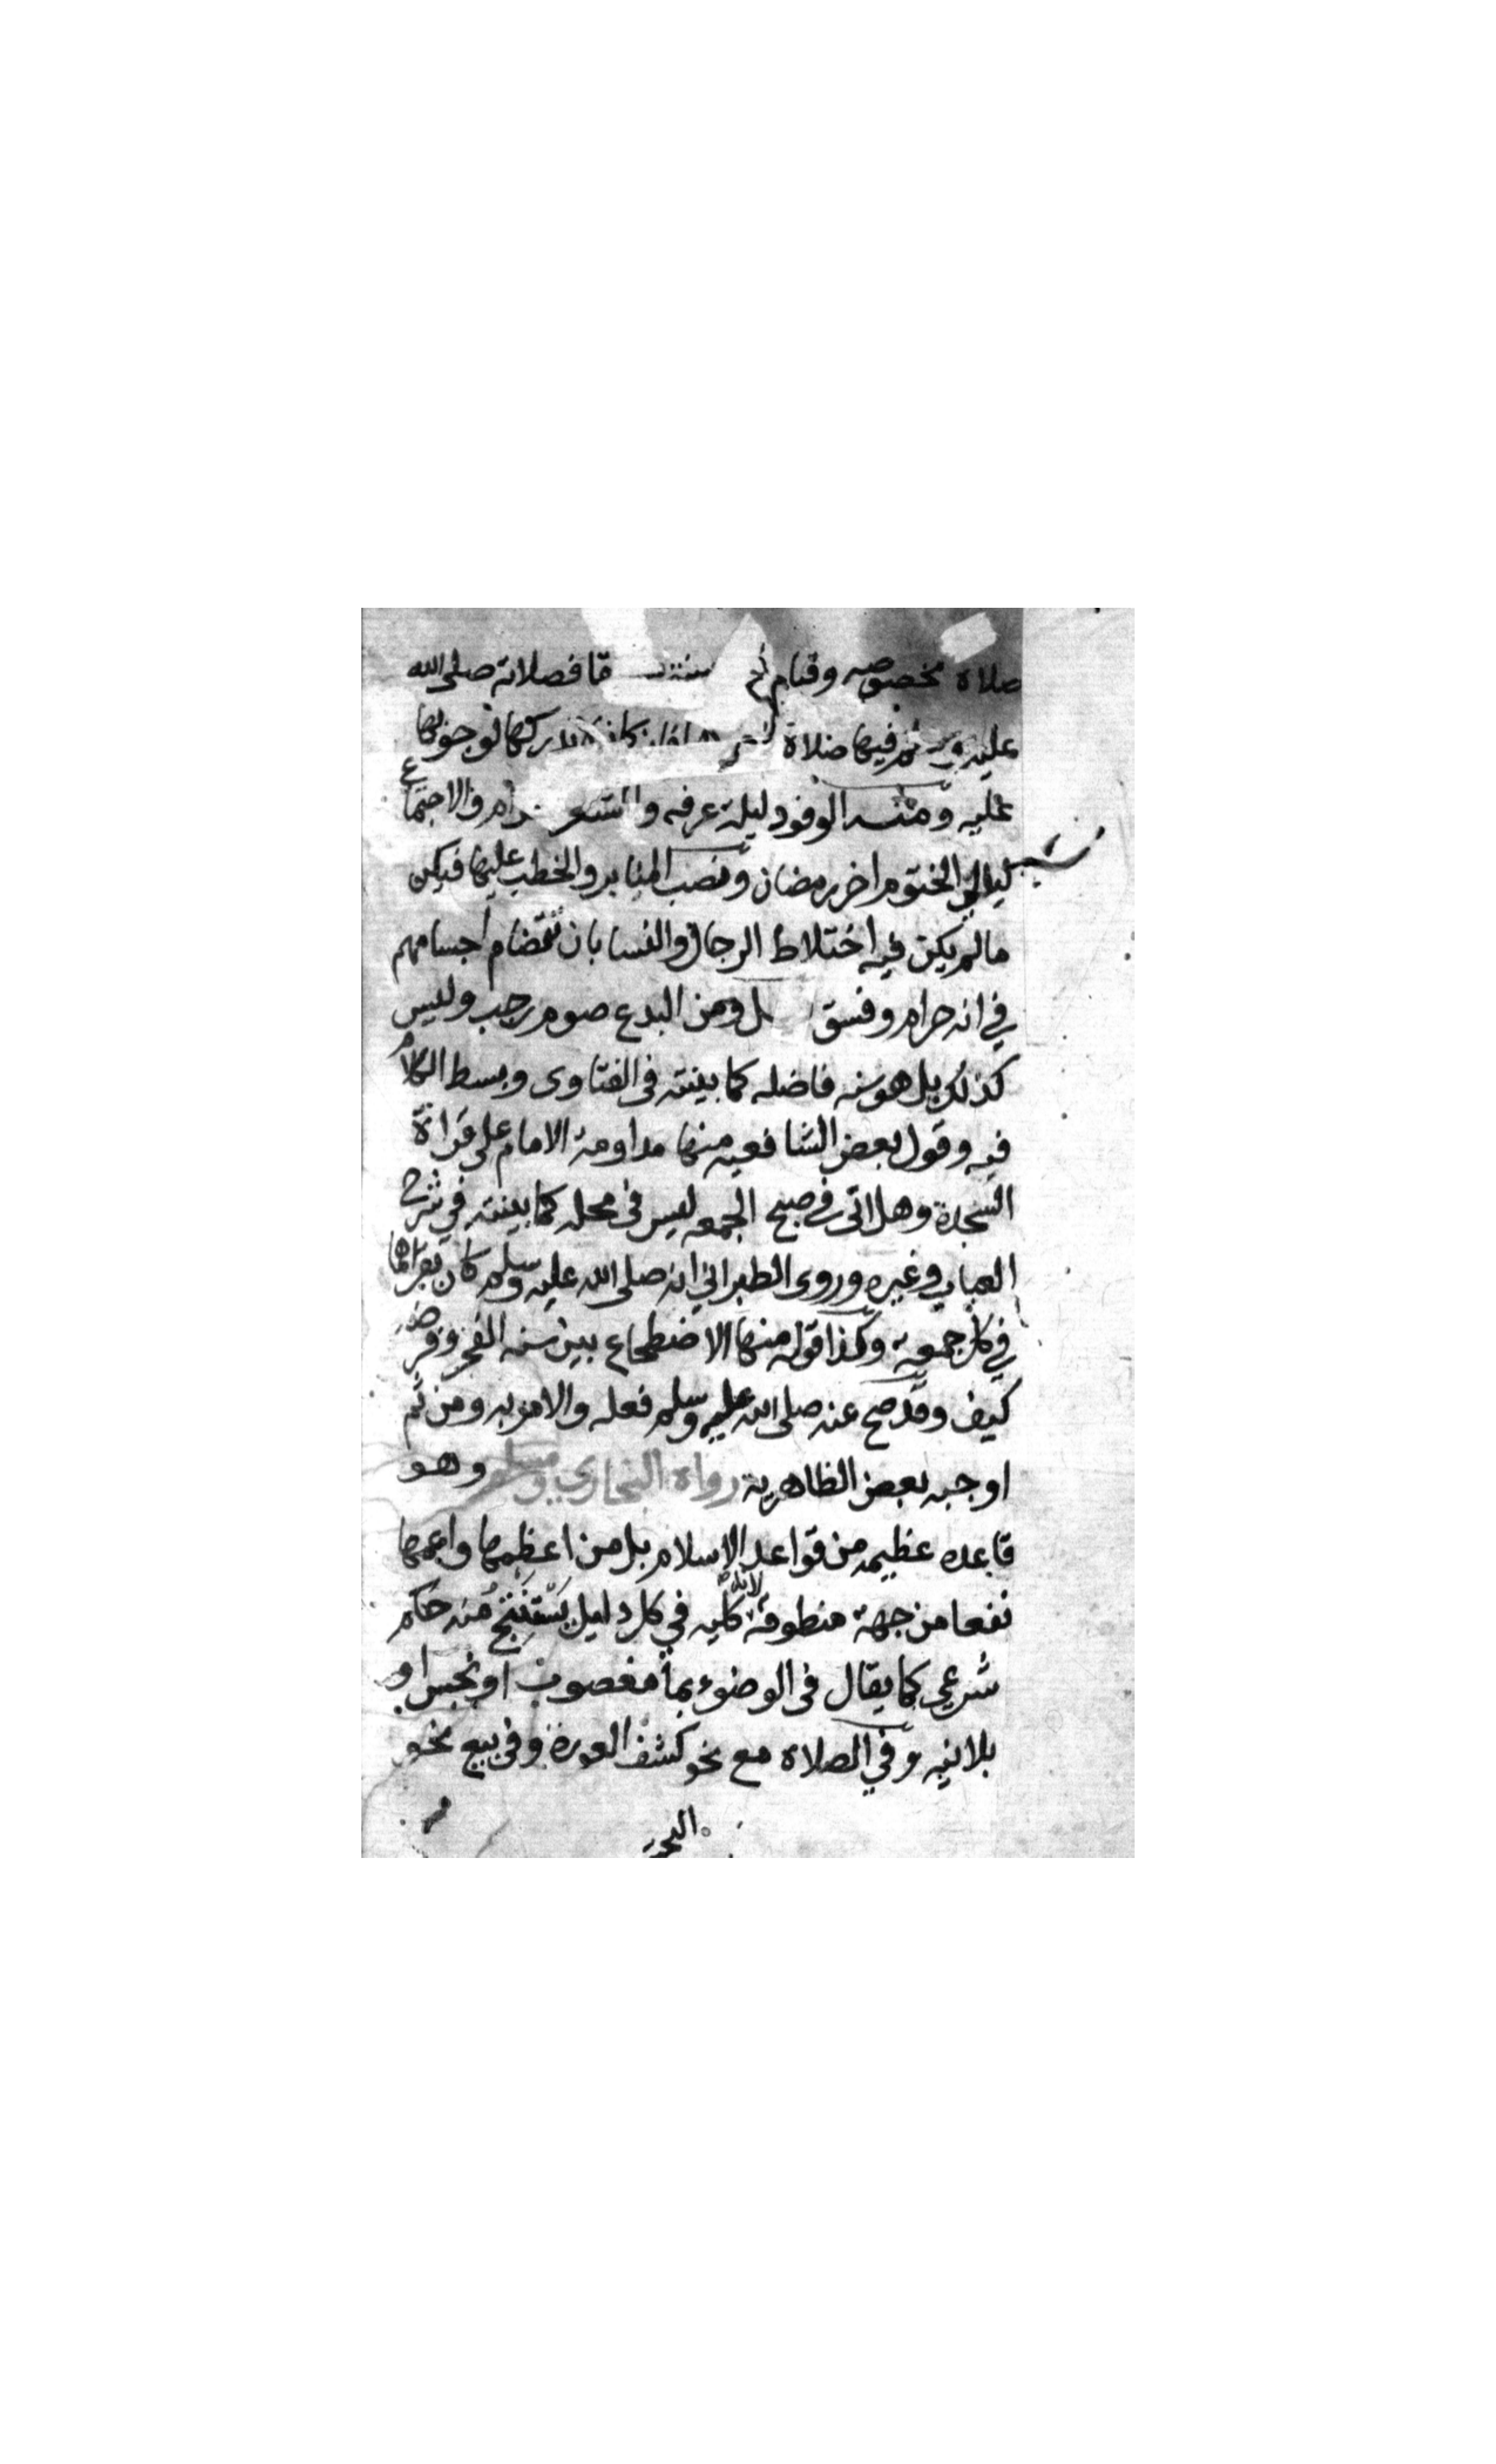 صلاة مخصوصه وقيام فصلاته صلى الله
عليه وسلم فيها صلاة لوجوبها
عليه ومنه الوقود ليلة عرفه والمشعر والاجتماع
ليالي الختوم اخر رمضان ونصب المنابر والخطب عليها فيكره
مالم يكن فيه اختلاط الرجال والنسا بان تتضام اجسامهم
في انه حرام وفسق ومن البدع صوم رجب وليس
كذلك بل هو سنه فاضله كما بينته في الفتاوى وبسط الكلام
فيه وقول بعض الشافعيه منها مداومة الامام على قراة
السجدة وهل اتى في صبح الجمعه ليس في محله كما بينته في شرح
العباب وغيره وروى الطبراني انه صلى الله عليه وسلم كان يقراهما
في كل جمعه وكذا قوله منها الاضطجاع بين سنه الفجر وفرضه
كيف وقد صح عنه صلى الله عليه وسلم فعله والامر به ومن ثم
اوجبه بعض الظاهرية رواه البخاري ومسلم وهو
قاعده عظيمه من قواعد الاسلام بل من اعظمها واعمها
نفعا من جهة منطوقه لانه كليه في كل دليل يستنتج منه حكم
شرعي كما يقال في الوضوء بماء مغصوب او نجس او
بلا نيه وفي الصلاة مع نحو كشف العورة وفي بيع نحو